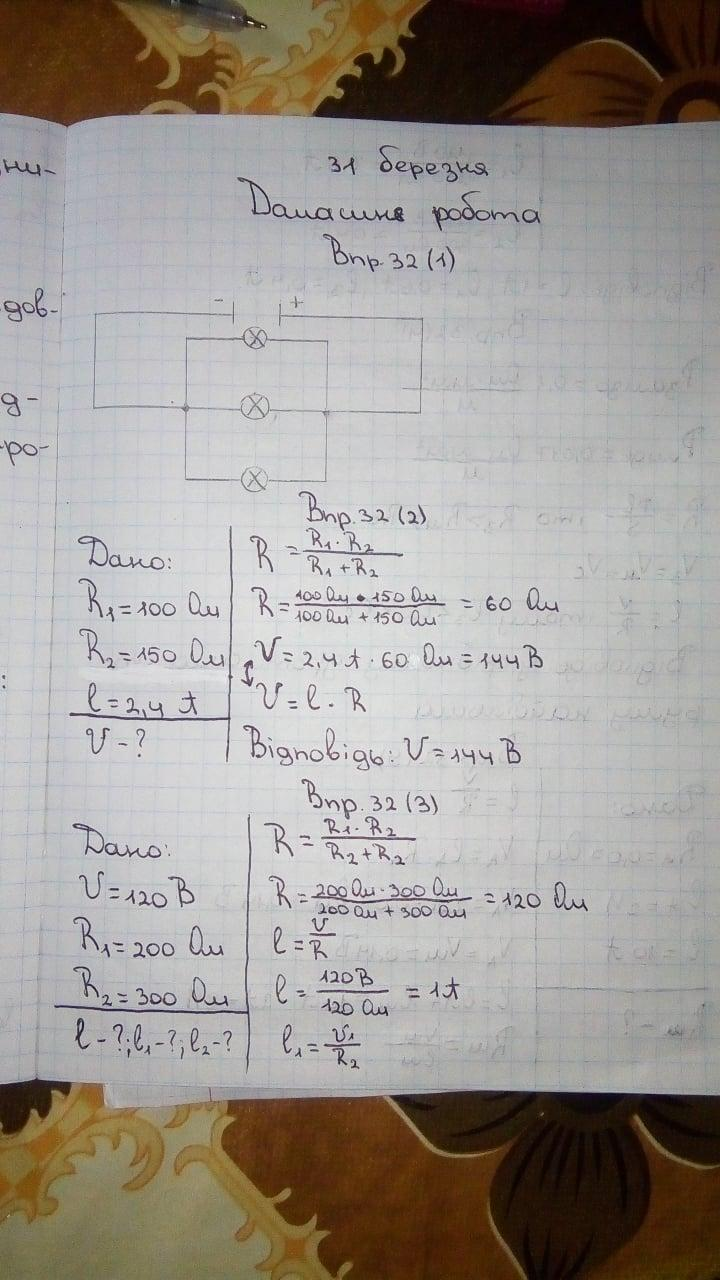 31 березня
Домашнє робота
Впр. 32 (1)
ни-
дов-
д-
ро-
:
- +
Впр. 32 (2)
Дано:
R₁ = 100 Ом
R₂ = 150 Ом
l = 2,4 A
U - ?
R = R₁ · R₂ / R₁ + R₂
R = 100 Ом · 150 Ом / 100 Ом + 150 Ом = 60 Ом
U = 2,4 A · 60 Ом = 144 В
U = l · R
Відповідь: U = 144 В
Впр. 32 (3)
Дано:
U = 120 В
R₁ = 200 Ом
R₂ = 300 Ом
l - ?; l₁ - ?; l₂ - ?
R = R₁ · R₂ / R₂ + R₂
R = 200 Ом · 300 Ом / 200 Ом + 300 Ом = 120 Ом
l = U / R
l = 120 В / 120 Ом = 1 A
l₁ = U₁ / R₂